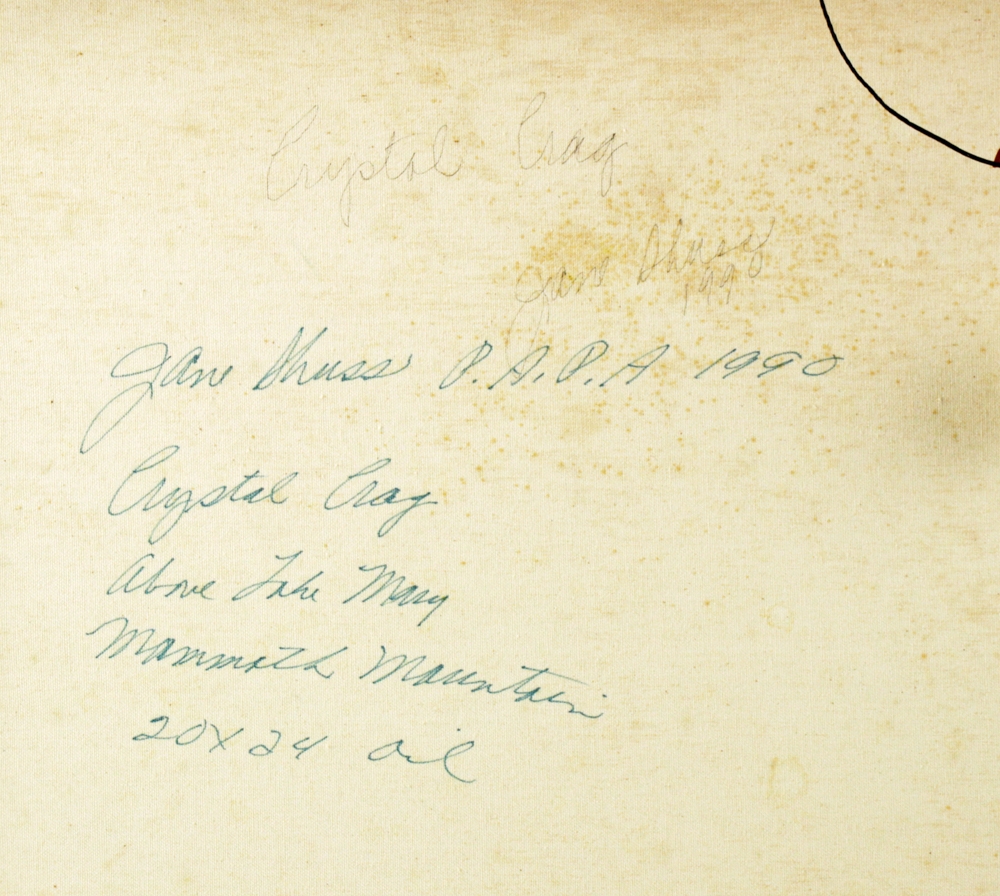 Crystal Crag
Jane Dhuss
1990
Jane Dhuss P.A.P.A 1990
Crystal Crag
Above Lake Mary
Mammoth Mountain
20X24 Oil